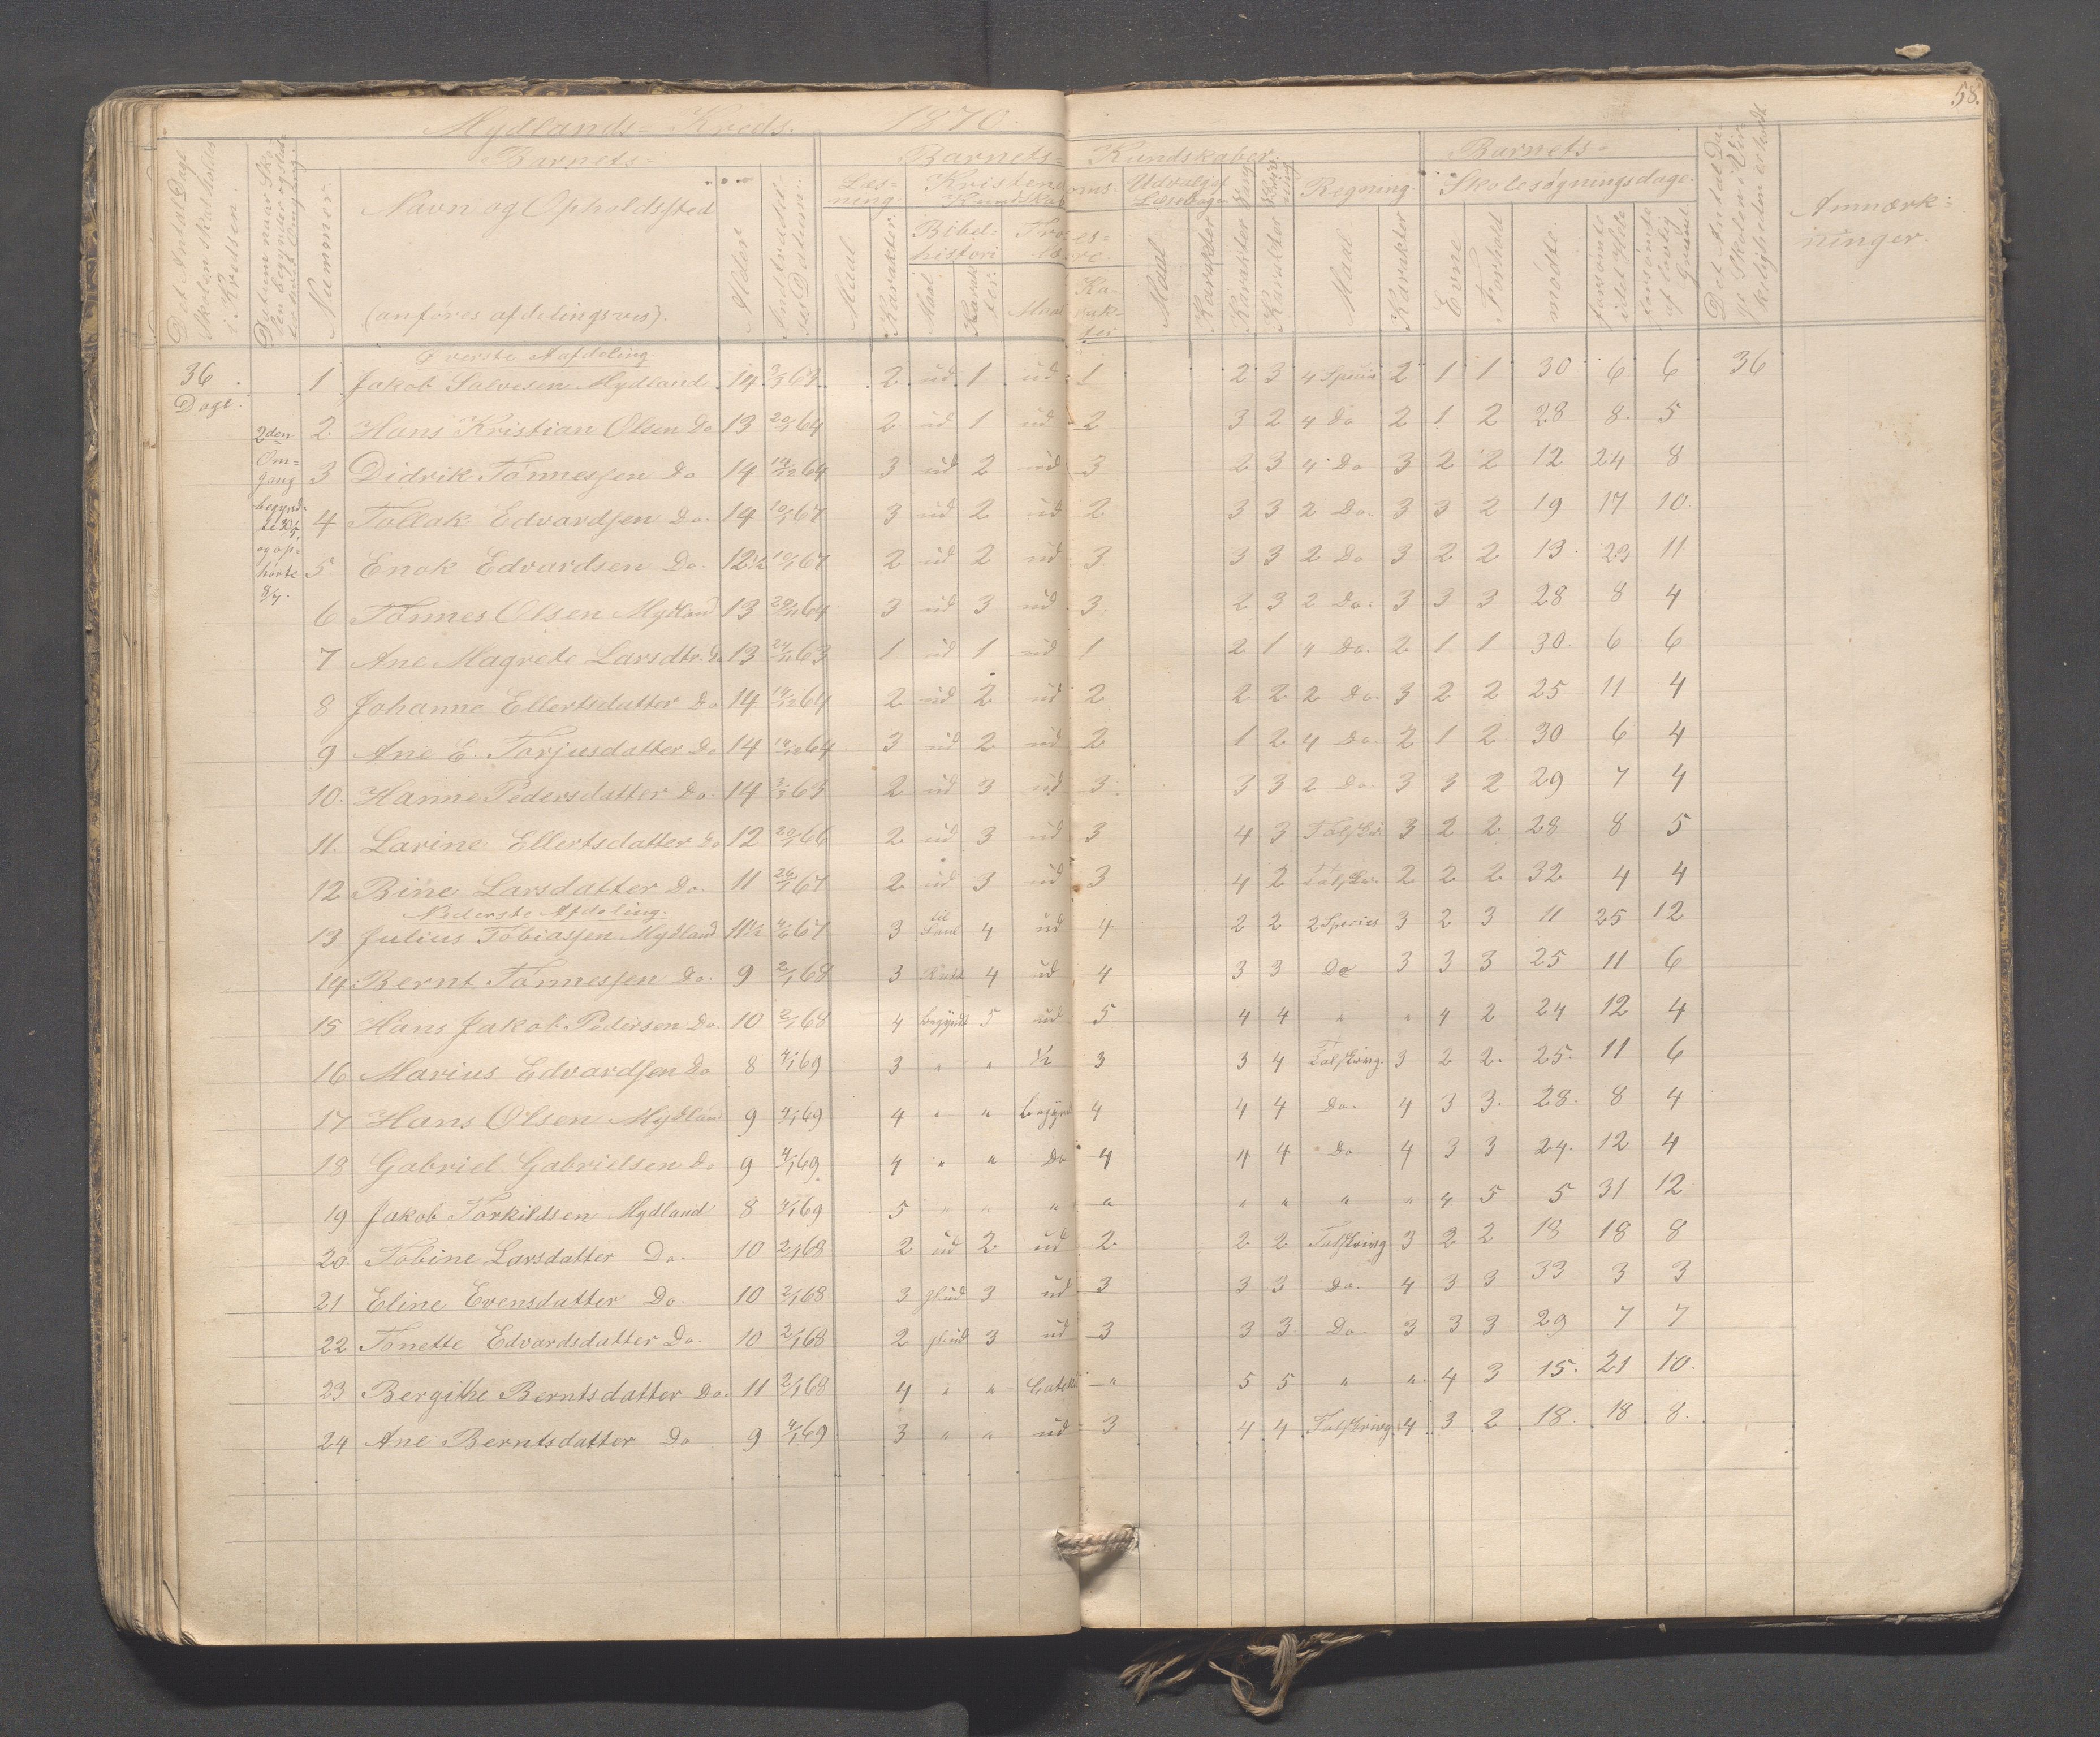 58.
Mydlands= Kreds. 1870.
Det Antal Dage Skolen skal holdes i Kredsen.
Datum naar Skolen begynder og slutter
Nummer.
Barnets=
Navn og Opholdssted
(anføres afdelingsvis).
Alder
Indtrædelses Datum.
Barnets= Kundskaber.
Læsning.
Kristendoms= Kundskab
Udvalg af Læsebogen
Sang
Skrivning
Regning.
Bibelhistori
Troeslære.
Maal Karakter Maal Karakter. Maal Karakter Maal Karakter Karakter Karakter Maal Karakter
Barnets=
Skolesøgningsdage.
Evne Forhold mødte. forsømte i det Hele forsømte af lovlig Grund.
Det Antal Dage Skolen i Virkeligheden er holdt
Anmærkninger.
Øverste Aafdeling.
36 Dage.
2den Omgang begyndte 30/5, og ophørte 8/7.
1 Jakob Salvesen Mydland. 14 3/3 63. 2 ud 1 ud 1 2 3 4 Species 2 1 1 30 6 6 36
2 Hans Kristian Olsen Do 13 64 2 ud 1 ud 2 3 2 4 Do 2 1 2 28 8. 5
3 Didrik Tönnessen Do 14 19/12 64 3 ud 2 ud 3 2 3 4 Do 3 2 2 12 24 8
4 Tollak Edvardsen Do. 14 10/1 67 3 ud 2 ud 2 3 3 2 Do. 3 3 2 19 17 10
5 Enok Edvardsen Do. 12½ 10/1 67 2 ud 2 ud 3 3 3 2 Do 3 2 2 13. 23 11
6 Tönnes Olsen Mydland 13 64 3 ud 3 ud 3 2 3 2 Do. 3 3 3 28 8 4
7 Ane Magrete Larsdtr. Do 13 63 1 ud 1 ud 1 2 1 4 Do. 2 1 1 30. 6 6
8 Johanne Ellertsdatter Do 14 19/12 64 2 ud 2 ud 2 2 2 2 Do. 3 2 2 25 11 4
9 Ane E. Torjusdatter Do 14 19/12 64 3 ud 2 ud 2 1 2 4 Do. 2 1 2 30 6 4
10. Hanne Pedersdatter Do. 14 3/3 63 2 ud 3 ud 3 3 3 2 Do. 3 3 2 29 7 4
11. Larine Ellertsdatter Do 12 66 2 ud 3 ud 3 4 3 3 2 2 28 8 5
12 Bine Larsdatter Do. 11 67 2 ud 3 ud 3 4 2 2 2 2 32 4 4
Nederste Afdeling.
13 Julius Tobiassen Mydland 11½ 67 3 til 4 ud 4 2 2 2 Species 3 2 3 11 25 12
14 Bernt Tönnessen Do. 9 2/1 68 3 4 ud 4 3 3 Do 3 3 3 25 11 6
15 Hans Jakob Pedersen Do. 10 2/1 68 4 begyndt 5 ud 5 4 4 " " 4 2 24 12 4
16 Marius Edvardsen Do 8 4/1 69 3 " " ½ 3 3 4 Talskrivng. 3 2 2. 25. 11 6
17 Hans Olsen Mydland 9 4/1 69 4 " " begyndt 4 4 4 Do. 4 3 3. 28. 8 4
18 Gabriel Gabrielsen Do 9 4/1 69. 4 " " Do 4 4 4 Do 4 3 3 24. 12 4
19 Jakob Torkildsen Mydland 8 4/1 69 5 " " " " " " " " 4 5 5 31 12
20. Tobine Larsdatter Do. 10 2/1 68 2 ud 2 ud 2 2 2 Talskrivng 3 2 2 18 18 8
21 Eline Evensdatter Do. 10 2/1 68 3 3 ud 3 3 3 Do. 4 3 3 33 3 3
22 Tonette Edvardsdatter Do. 10 2/1 68 2 3 ud 3 3 3 Do. 3 3 3 29 7 7
23 Bergithe Berntsdatter Do. 11 2/1 68 4 " " " 5 5 " " 4 3 15. 21 10.
24 Ane Berntsdatter Do 9 4/1 69 3 " " ud 3 4 4 Talskrivng. 4 3 2 18. 18 8.